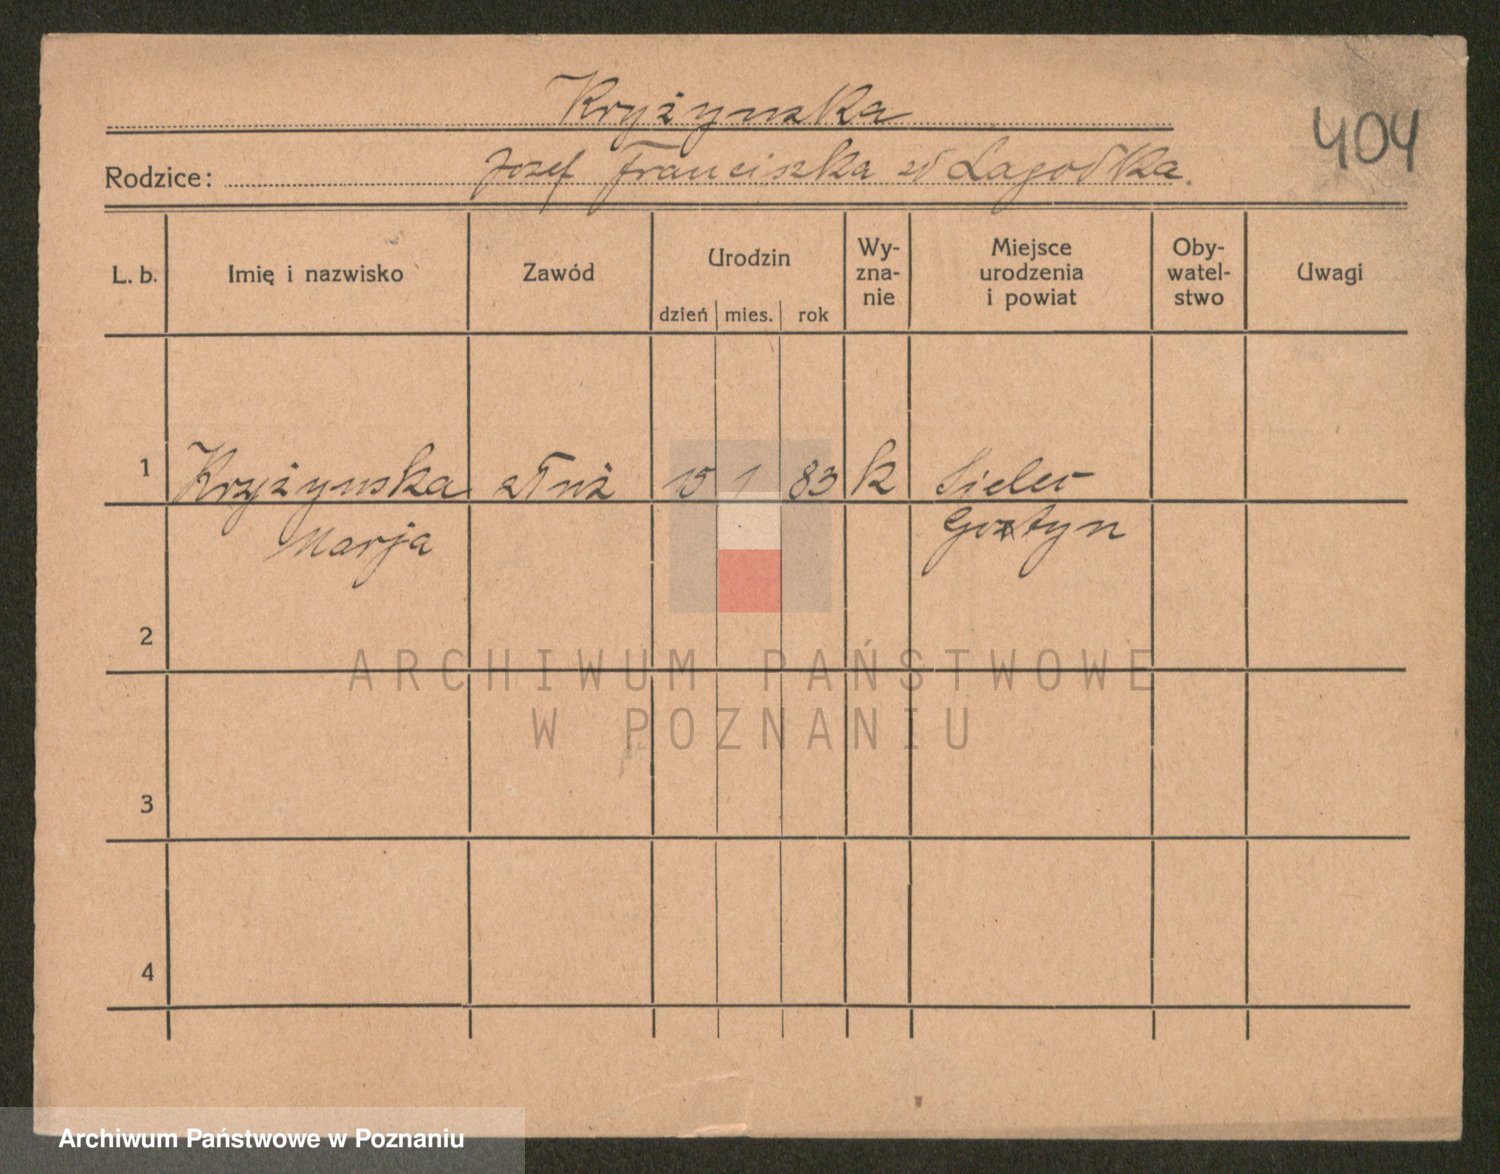 Kryżynska
404
Rodzice: Jozef Franciszka zd Lagodka.
L. b. Imię i nazwisko Zawód Urodzin dzień mies. rok Wy-zna-nie Miejsce urodzenia i powiat Oby-watel-stwo Uwagi
1 Kryżynska służ 15 1 83 k Sielec
Marja Gostyn
2
3
4
ARCHIWUM PAŃSTWOWE
W POZNANIU
Archiwum Państwowe w Poznaniu